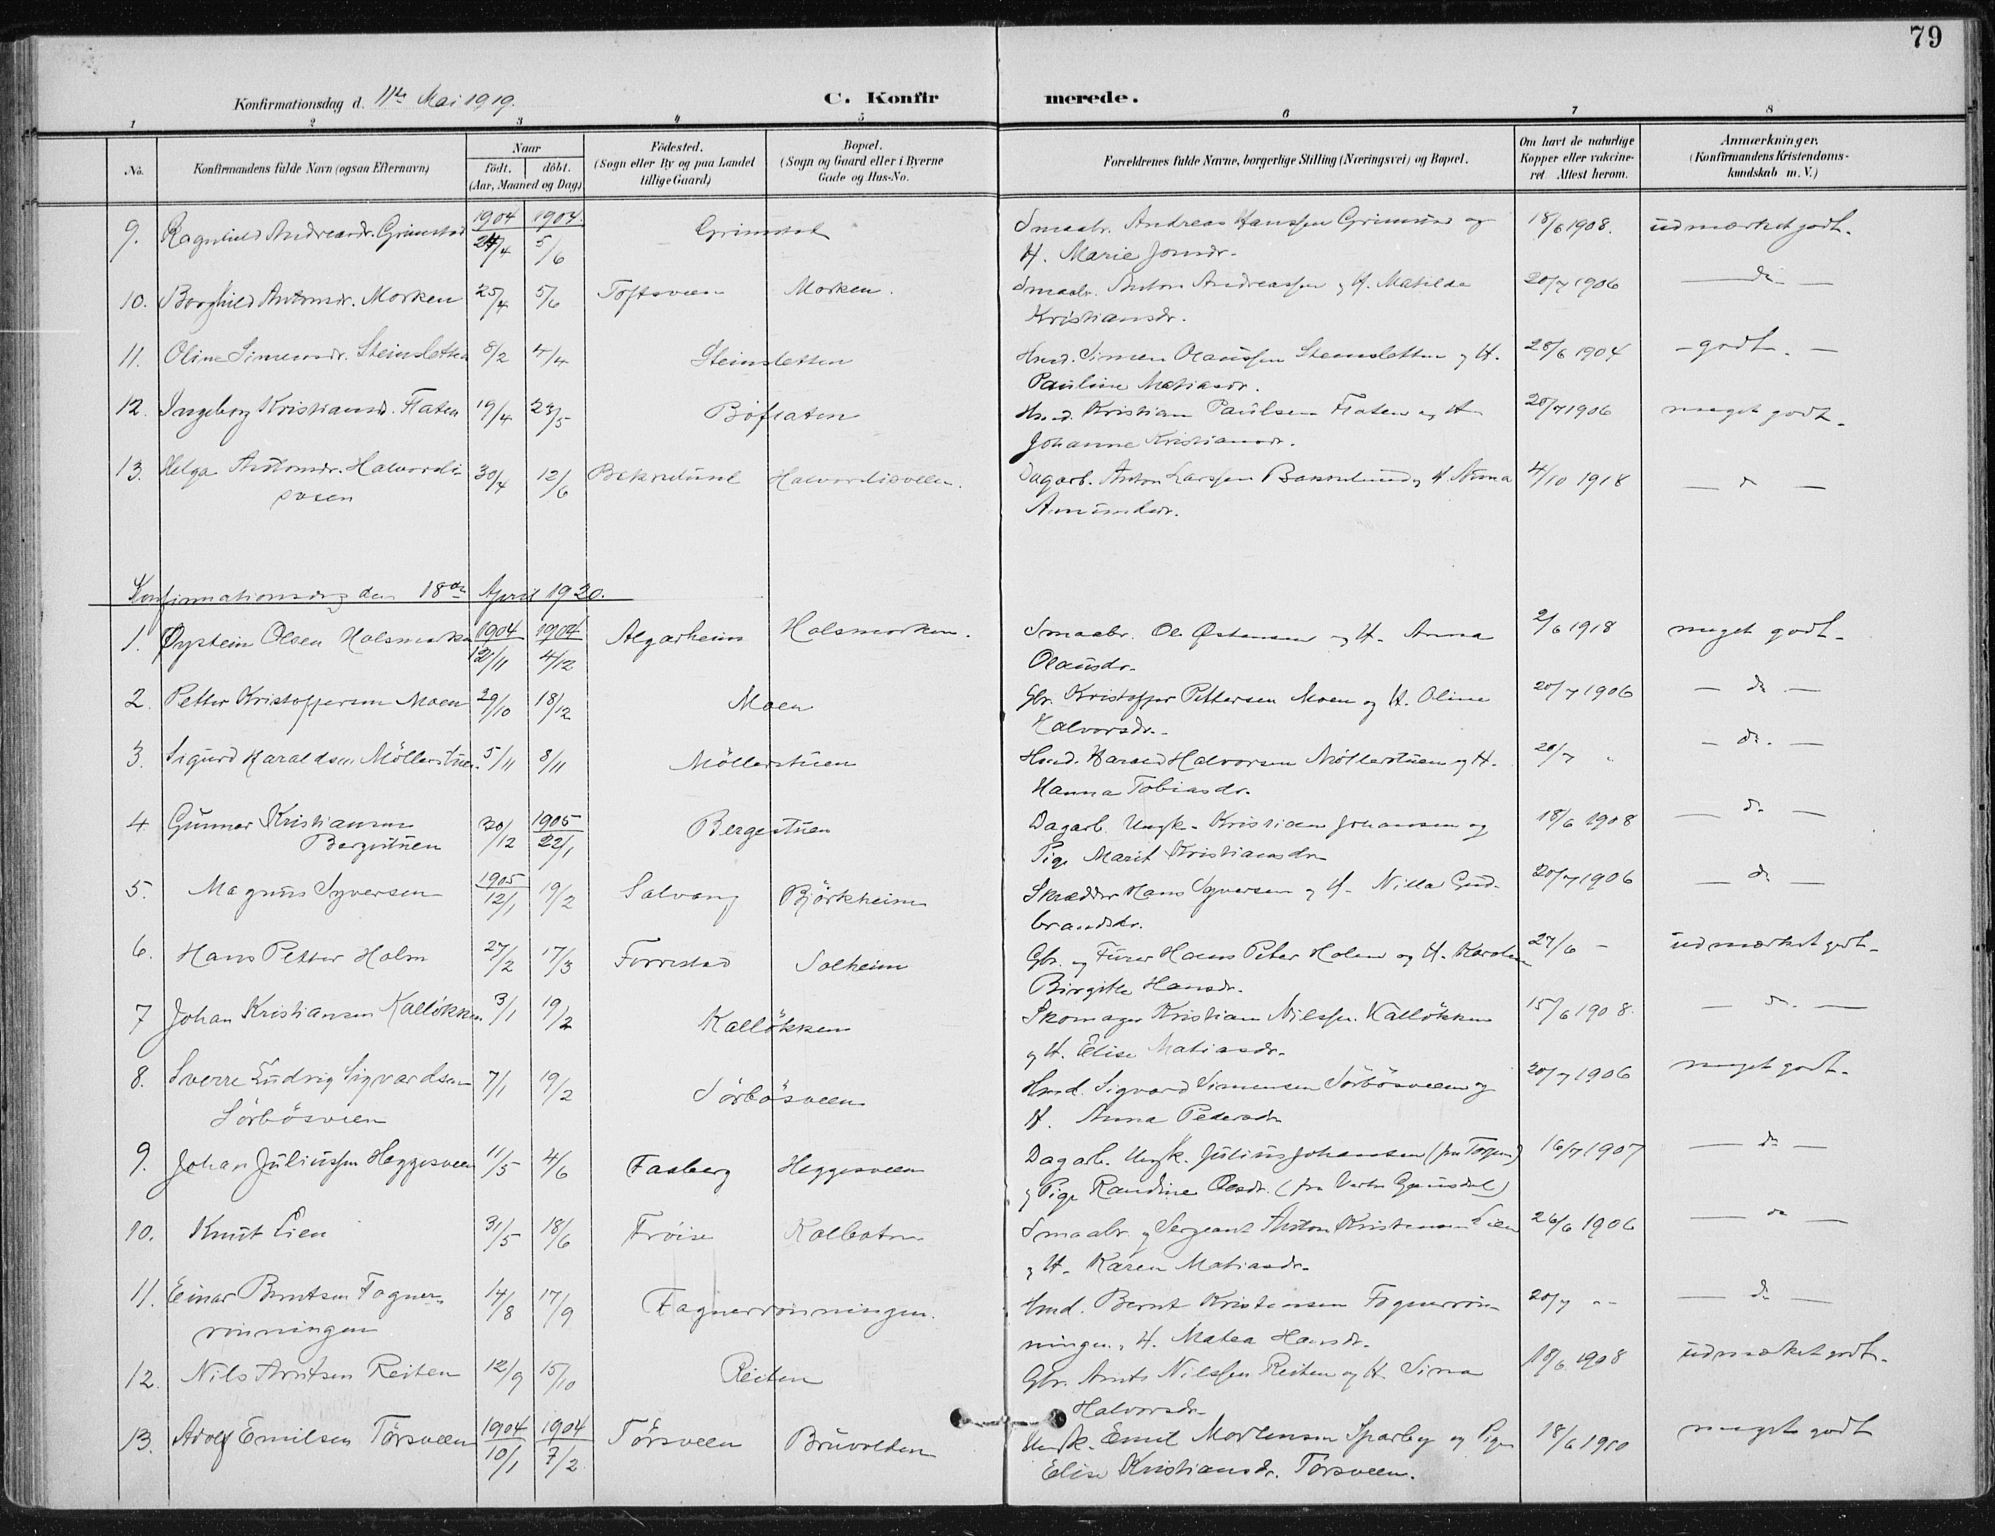 79
Konfirmationsdag d. 11te Mai 1919.
C. Konfirmerede.
1 2 3 4 5 6 7 8
No. Konfirmandens fulde Navn (ogsaa Efternavn) Naar födt. döbt. (Aar, Maaned og Dag) Födested. (Sogn eller By og paa Landet tillige Gaard) Bopæl. (Sogn og Gaard eller i Byerne Gade og Hus-No. Forældrenes fulde Navne, borgerlige Stilling (Næringsvei) og Bopæl. Om havt de naturlige Kopper eller vakcineret. Attest herom. Anmærkninger. (Konfirmandens Kristendomskundskab m. V.)
9. Ragnhild Andreasdr. Grimstad 1904 24/4 1904. 5/6 Grimstad Smaabr. Andreas Hanssen Grimstad og 18/6 1908. udmærket godt.
H. Marie Jonsdr.
10. Borghild Antonsdr. Morken 25/4 5/6 Toftsveen Morken. Smaabr. Anton Andreassen og H. Matilde 20/7 1906 — do —
Kristiansdr.
11. Oline Simensdr. Steinsletten 8/2 4/4 Steinsletten Hmd. Simen Olaussen Steinsletten og H. 28/6 1904 - godt. —
Pauline Matiasdr.
12. Ingeborg Kristiansdr. Flaten 19/4 23/5 Böflaten Hmd. Kristian Paulsen Flaten og H. 20/7 1906 meget godt.
Johanne Kristiansdr.
13. Helga Antonsdr. Halvordli- 30/4 12/6 Bakkelund Halvordlisveen. Dagarb. Anton Larssen Bakkelund og H. 4/10 1918 — " —
sveen Amundsdr.
Konfirmationsdag den 18de April 1920.
1. Øystein Olsen Holsmorken 1904 12/11 1904 4/12 Algarheim Holsmorken. Smaabr. Ole Østensen og H. Anna 2/6 1918 meget godt.
Olausdr.
2. Petter Kristoffersen Moen 29/10 18/12 Moen Gbr. Kristoffer Pettersen Moen og H. Oline 20/7 1906 — do —
Halvorsdr.
3. Sigurd Haraldsen Möllerstuen. 5/11 8/11 Möllerstuen Hmd. Harald Halvorsen Möllerstuen og H. 20/7 " — do. —
Hanna Tobiasdr.
4. Gunnar Kristiansen 30/12 1905 22/1 Bergestuen Dagarb. Ungk. Kristian Johansen og 18/6 1908 — do —
Bergestuen Pige Marit Kristiansdr.
5. Magnus Syversen 1905 12/1 19/2 Solvang Björkheim Skrædder Hans Syversen og H. Nilla Gud- 20/7 1906 — do —
brandsdr.
6. Hans Petter Holm 27/2 17/3 Forrestad Solheim Gbr. og Furer Hans Peter Holm og H. Karolen 27/6 - udmærket godt.
Birgitte Hansdr.
7 Johan Kristiansen Kallökken 3/1 19/2 Kallökken Skomager Kristian Nilssen Kallökken 15/6 1908. — do. —
og H. Elise Matiasdr.
8. Sverre Ludvig Sigvardsen 7/1 19/2 Sörbösveen Hmd. Sigvard Simensen Sörbösveen og 20/7 1906 meget godt.
Sörbösveen H. Anna Pedersdr.
9. Johan Juliussen Heggesveen 11/5 4/6 Faaberg Heggesveen Dagarb. Ungk. Julius Johansen (fra Torpen) 16/7 1907 — do —
og Pige Randine Olesdr. (fra Vestre Gausdal)
10. Knut Lien 31/5 18/6 Fröise Kolbotn Smaabr. og Sergeant Anton Kristensen Lien 26/6 1906 — do —
og H. Karen Matiasdr.
11. Einar Berntsen Fagner- 14/8 17/9 Fagnerrönningen. Hmd. Bernt Kristensen Fagnerrön- 20/7 " — do —
rönningen ningen, H. Matea Hansdr.
12. Nils Arntsen Reiten 12/9 15/10 Reiten Gbr. Arnts Nilssen Reiten og H. Sina 18/6 1908 udmærket godt.
Halvorsdr.
13. Adolf Emilsen Törsveen 1904 10/1 1904 7/2 Törsveen Bruvolden Ungk. Emil Mortensen Sparby og Pige 18/6 1910 meget godt
Elise Kristiansdr. Törsveen.